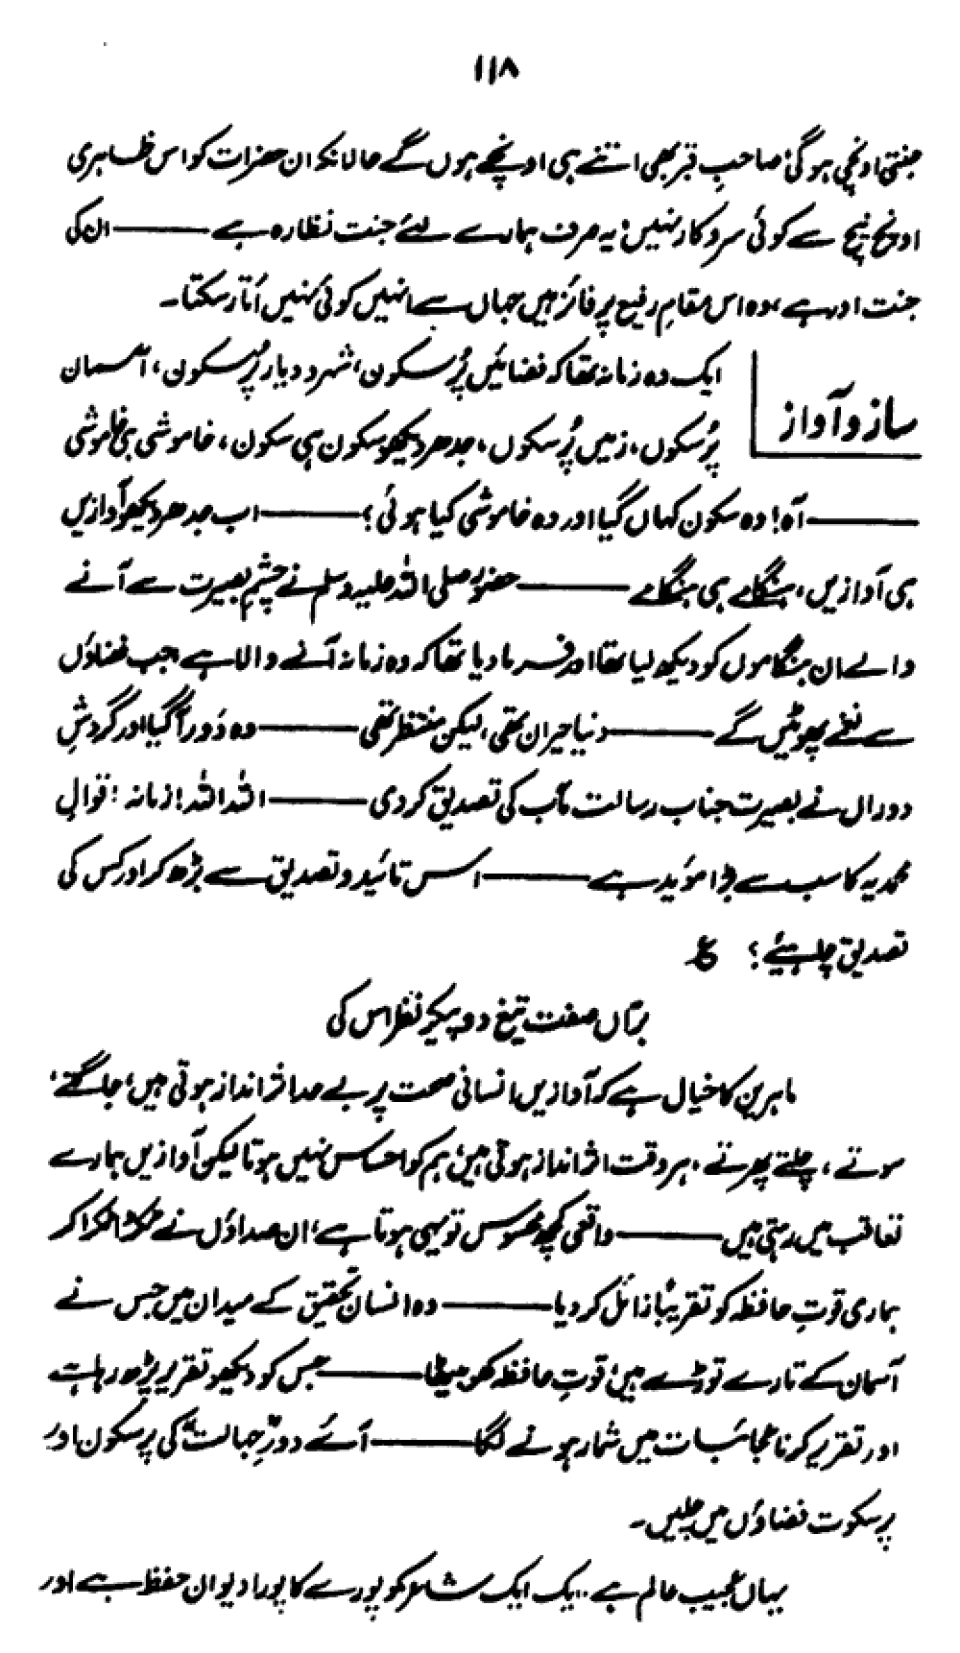 ۱۱۸
جتنی اونچی ہوگی؛ صاحبِ قبر بھی اتنے ہی اونچے ہوں گے حالانکہ ان حضرات کو اس ظاہری
اونچ نیچ سے کوئی سروکار نہیں؛ یہ صرف ہمارے لئے جنت نظارہ ہے ——— ان کی
جنت اور ہے، وہ اس مقامِ رفیع پر فائز ہیں جہاں سے انہیں کوئی نہیں اُتار سکتا۔
ساز و آواز
ایک وہ زمانہ تھا کہ فضائیں پُرسکون، شہر و دیار پُرسکون، آسمان
پُرسکوں، زمیں پُرسکوں، جدھر دیکھو سکون ہی سکون، خاموشی ہی خاموشی
——— آہ! وہ سکون کہاں گیا اور وہ خاموشی کیا ہوئی؟ ——— اب جدھر دیکھو آوازیں
ہی آوازیں، ہنگامے ہی ہنگامے ——— حضور صلی اللہ علیہ وسلم نے چشمِ بصیرت سے آنے
والے ان ہنگاموں کو دیکھ لیا تھا اور فرما دیا تھا کہ وہ زمانہ آنے والا ہے جب فضاؤں
سے نغمے پھوٹیں گے ——— دنیا حیران تھی، لیکن منتظر تھی ——— وہ دَور آگیا اور گردشِ
دوراں نے بصیرت جناب رسالت مآب کی تصدیق کردی ——— اللہ اللہ! زمانہ اقوالِ
محمدیہ کا سب سے بڑا مؤید ہے ——— اس تائید و تصدیق سے بڑھ کر اور کس کی
تصدیق چاہیئے؟ ع
براں صفت تیغ دو پیکر نظر اس کی
ماہرین کا خیال ہے کہ آوازیں انسانی صحت پر بے حد اثر انداز ہوتی ہیں؛ جاگتے،
سوتے، چلتے پھرتے، ہر وقت اثر انداز ہوتی ہیں؛ ہم کو احساس نہیں ہوتا لیکن آوازیں ہمارے
تعاقب میں رہتی ہیں ——— واقعی کچھ محسوس تو یہی ہوتا ہے؛ ان صداؤں نے ٹکرا ٹکرا کر
ہماری قوتِ حافظہ کو تقریباً زائل کردیا ——— وہ انسان تحقیق کے میدان میں جس نے
آسمان کے تارے توڑے ہیں؛ قوتِ حافظہ کھو بیٹھا ——— جس کو دیکھو تقریر پڑھ رہا ہے
اور تقریر کرنا عجائبات میں شمار ہونے لگا ——— آئے دورِ "جہالت" کی پرسکون اور
پرسکوت فضاؤں میں چلیں۔
یہاں عجیب عالم ہے۔ ایک ایک شاعر کو پورے کا پورا دیوان حفظ ہے اور